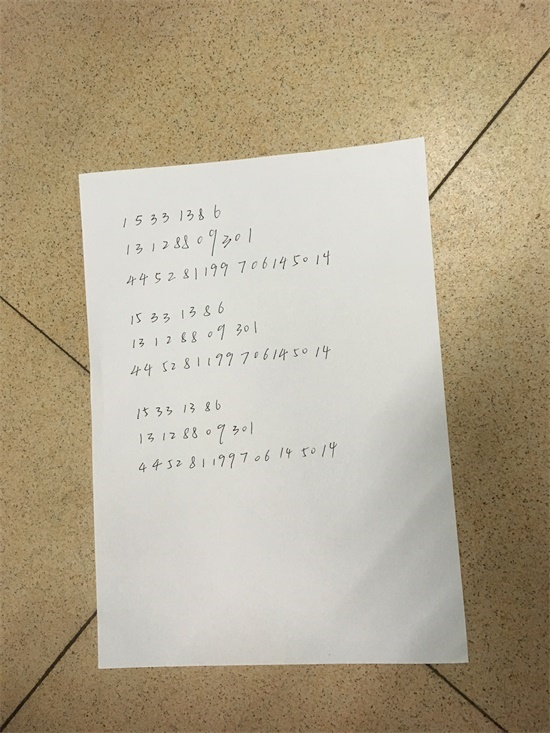 15331386
13128809301
445281199706145014
15331386
13128809301
445281199706145014
15331386
13128809301
445281199706145014